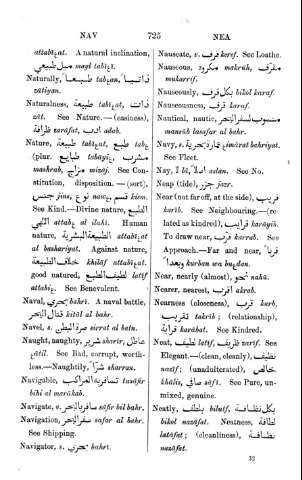 NAV 725 NEA
attabiɛat. A natural inclination,
ميل طبيعي mayl tabiɛi.
Naturally, طبعا tabɛan, ذاتيا
zâtiyan.
Naturalness, طبيعة tabiɛat, ذات
zât. See Nature.—(easiness),
ظرافة zarâfat, ادب adab.
Nature, طبيعة tabiɛat, طبع tabɛ
(plur. طبايع tabâyiɛ), مشرب
mashrab, مزاج mizâj. See Con-
stitution, disposition. — (sort),
جنس jins, نوع nawɛ, قسم kism.
See Kind.—Divine nature, الطبع
الالهي attabɛ al ilahi. Human
nature, الطبيعة البشرية attabiɛat
al bashariyat. Against nature,
خلاف الطبيعة khilâf attabiɛat.
good natured, لطيف الطبع latîf
attabiɛ. See Benevolent.
Naval, بحري bahri. A naval battle,
قتال البحر kitâl al bahr.
Navel, s. صرة البطن sirrat al batn.
Naught, naughty, شرير sharîr, عاطل
ɛâtil. See Bad, corrupt, worth-
less.—Naughtily, شرا sharran.
Navigable, تسافر به المراكب tusâfir
bihi al marâkab.
Navigate, v. سافر بالبحر sâfir bil bahr.
Navigation, سفر البحر safar al bahr.
See Shipping.
Navigator, s. بحري bahri.
Nauseate, v. قرف karef. See Loathe.
Nauseous, مكروه makrûh, مقرف
mukarrif.
Nauseously, بكل قرف bikol karaf.
Nauseousness, قرف karaf.
Nautical, nautic, منسوب لسفر البحر
mansûb lasafar al bahr.
Navy, s. عمارة بحرية ɛimârat bahriyat.
See Fleet.
Nay, لا lâ, اصلا aslan. See No.
Neap (tide), جزر jazr.
Near (not far off, at the side), قريب
karîb. See Neighbouring.—(re-
lated as kindred), قرايب karâyib.
To draw near, قرب karrab. See
Approach.—Far and near, قربا
وبعدا kurban wa buɛdan.
Near, nearly (almost), نحو nahû.
Nearer, nearest, اقرب akrab.
Nearness (closeness), قرب kurb,
تقريب takrîb; (relationship),
قرابة karâbat. See Kindred.
Neat, لطيف latîf, ظريف zarîf. See
Elegant.—(clean, cleanly), نظيف
nazîf; (unadulterated), خالص
khâlis, صافي sâfi. See Pure, un-
mixed, genuine.
Neatly, بلطف bilutf, بكل نظافة
bikol nazâfat. Neatness, لطافة
latâfat; (cleanliness), نظافة
nazâfat.
32